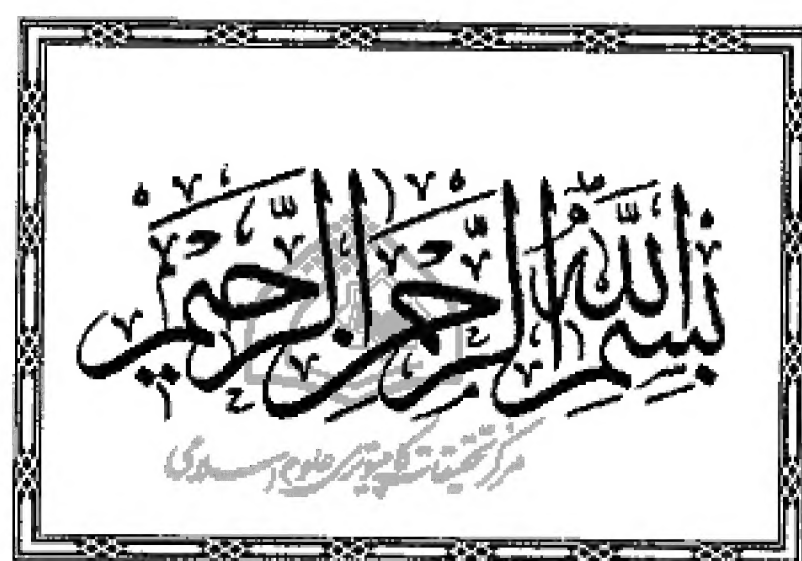 بِسْمِ اللَّهِ الرَّحْمَنِ الرَّحِيمِ
مرکز تحقیقات کامپیوتری علوم اسلامی